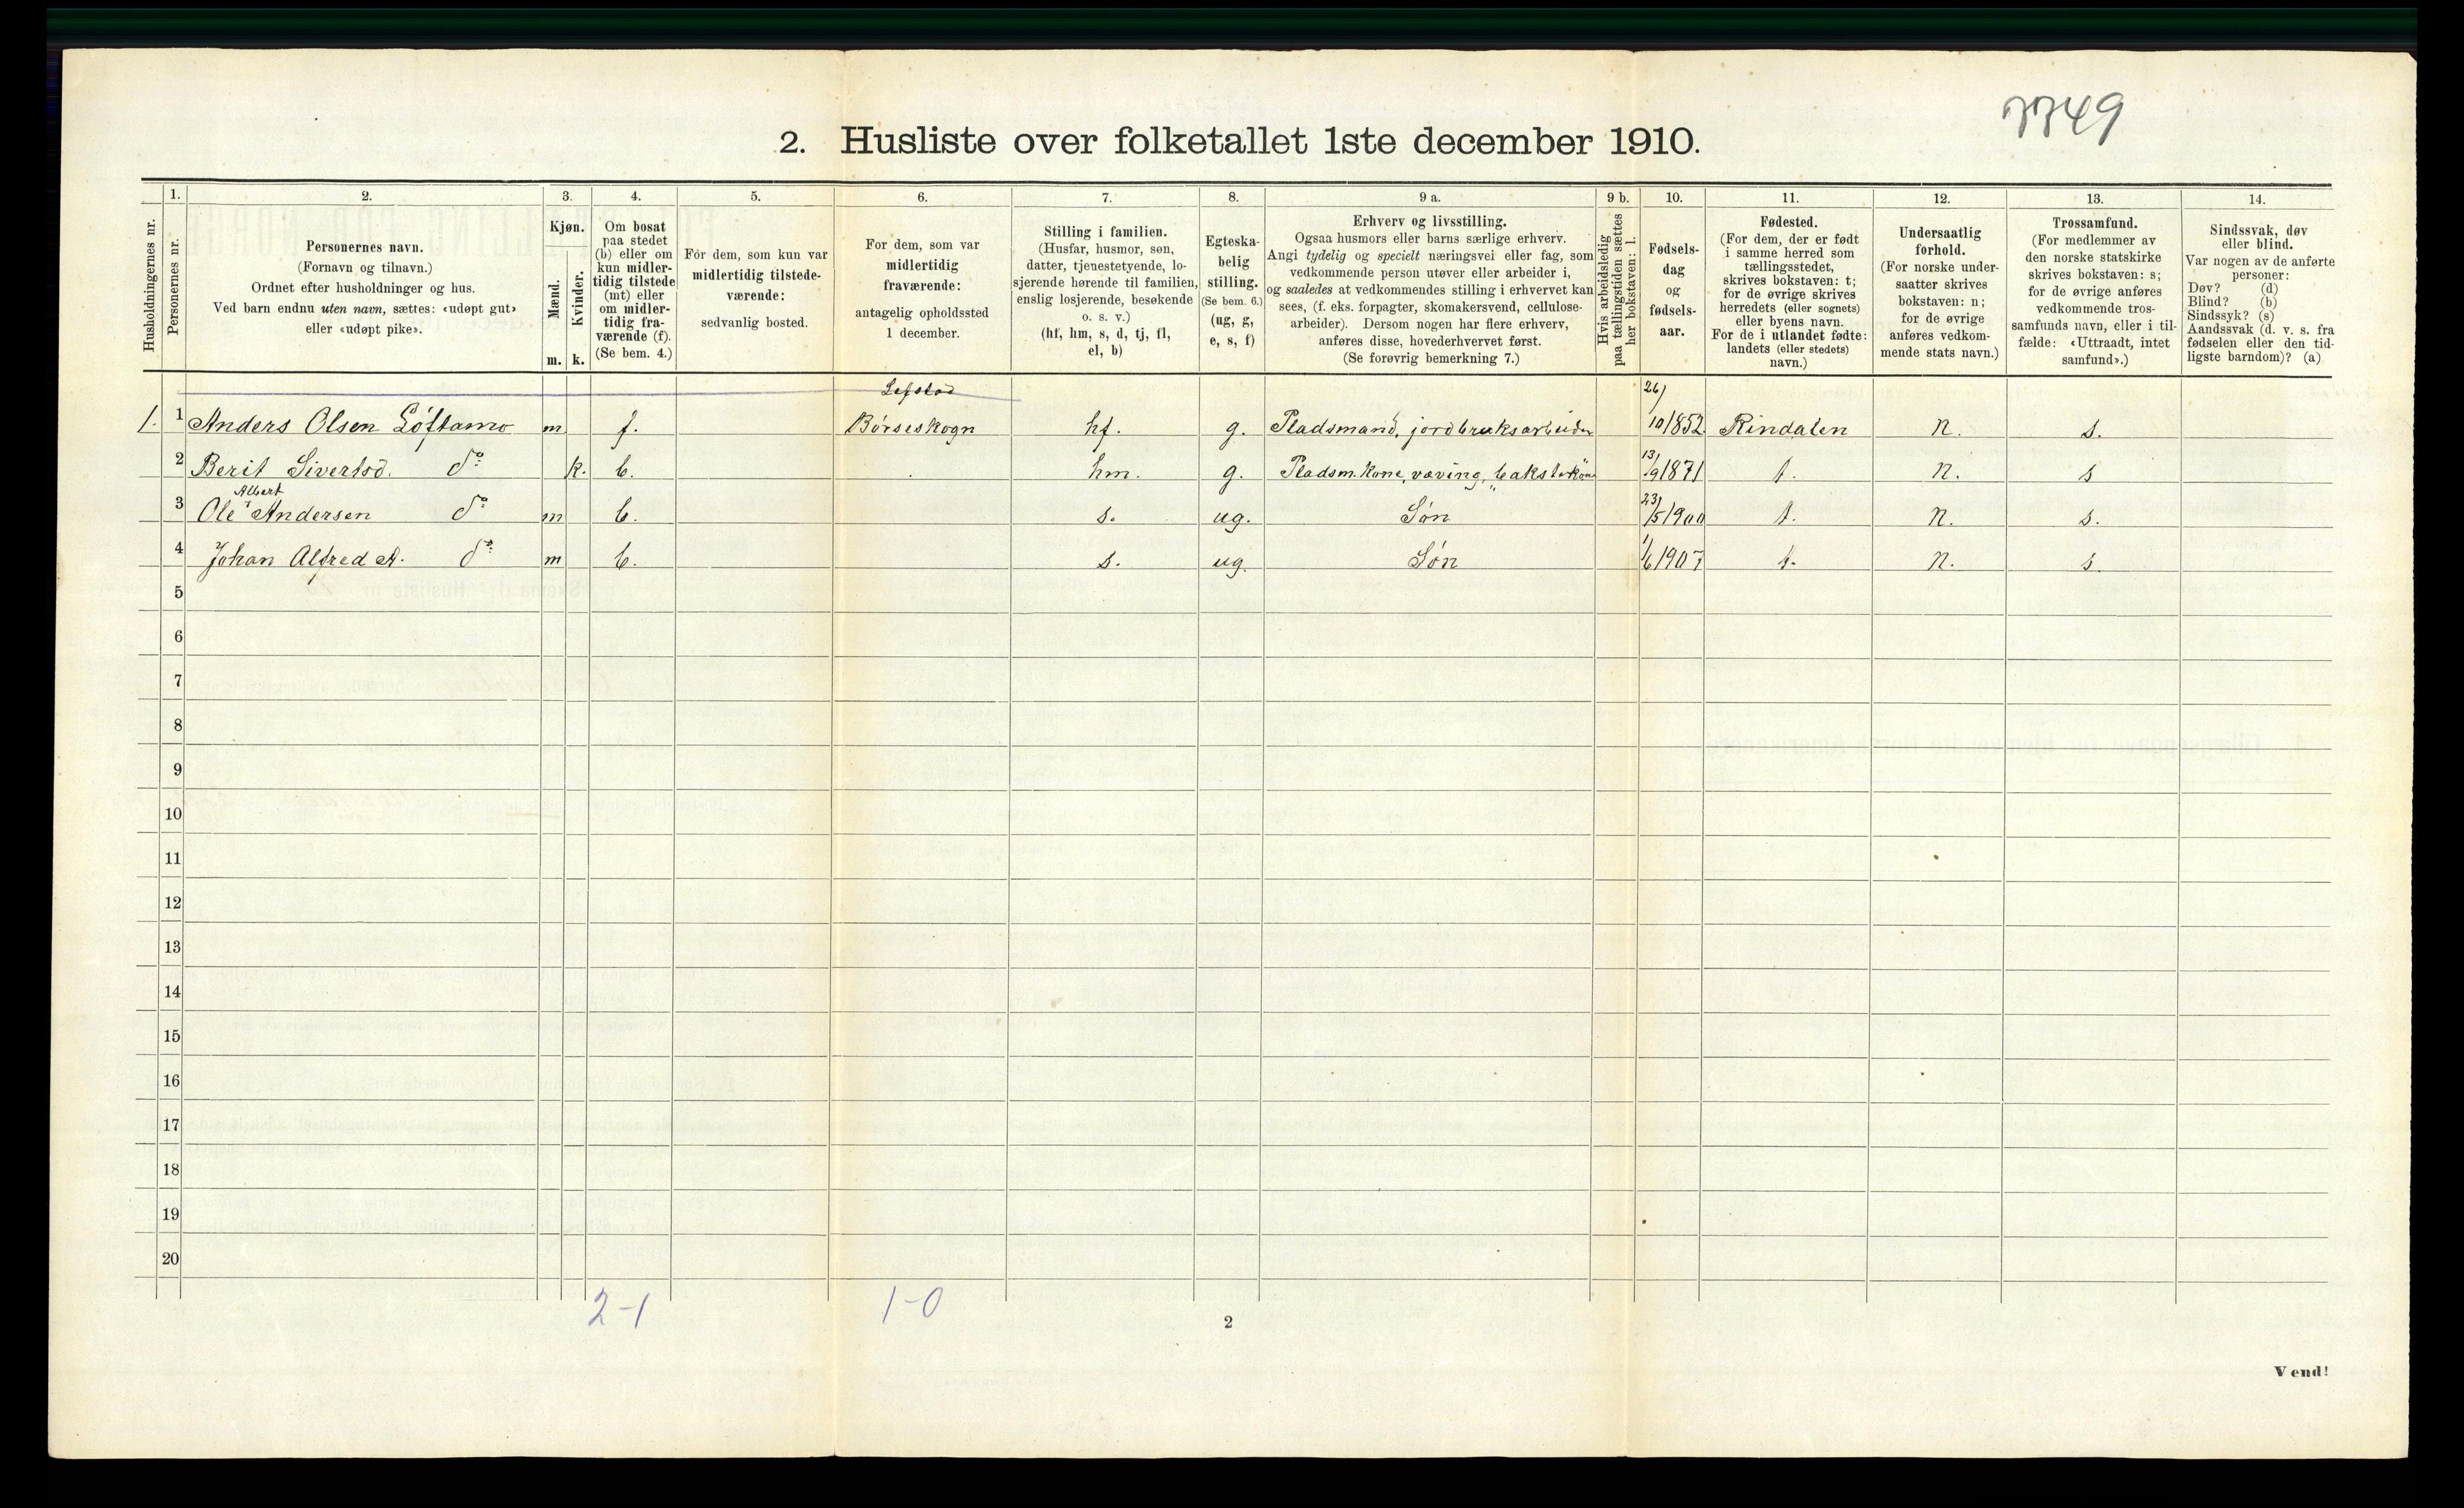 7749
2. Husliste over folketallet 1ste december 1910.
Husholdningernes nr.
1.
Personernes nr.
2.
Personernes navn.
(Fornavn og tilnavn.)
Ordnet efter husholdninger og hus.
Ved barn endnu uten navn, sættes: «udøpt gut»
eller «udøpt pike».
3.
Kjøn.
Mænd.
Kvinder.
m. k.
4.
Om bosat
paa stedet
(b) eller om
kun midler-
tidig tilstede
(mt) eller
om midler-
tidig fra-
værende (f).
(Se bem. 4.)
5.
For dem, som kun var
midlertidig tilstede-
værende:
sedvanlig bosted.
6.
For dem, som var
midlertidig
fraværende:
antagelig opholdssted
1 december.
7.
Stilling i familien.
(Husfar, husmor, søn,
datter, tjenestetyende, lo-
sjerende hørende til familien,
enslig losjerende, besøkende
o. s. v.)
(hf, hm, s, d, tj, fl,
el, b)
8.
Egteska-
belig
stilling.
(Se bem. 6.)
(ug, g,
e, s, f)
9 a.
Erhverv og livsstilling.
Ogsaa husmors eller barns særlige erhverv.
Angi tydelig og specielt næringsvei eller fag, som
vedkommende person utøver eller arbeider i,
og saaledes at vedkommendes stilling i erhvervet kan
sees, (f. eks. forpagter, skomakersvend, cellulose-
arbeider). Dersom nogen har flere erhverv,
anføres disse, hovederhvervet først.
(Se forøvrig bemerkning 7.)
9 b.
Hvis arbeidsledig
paa tællingstiden sættes
her bokstaven: l.
10.
Fødsels-
dag
og
fødsels-
aar.
11.
Fødested.
(For dem, der er født
i samme herred som
tællingsstedet,
skrives bokstaven: t;
for de øvrige skrives
herredets (eller sognets)
eller byens navn.
For de i utlandet fødte:
landets (eller stedets)
navn.)
12.
Undersaatlig
forhold.
(For norske under-
saatter skrives
bokstaven: n;
for de øvrige
anføres vedkom-
mende stats navn.)
13.
Trossamfund.
(For medlemmer av
den norske statskirke
skrives bokstaven: s;
for de øvrige anføres
vedkommende tros-
samfunds navn, eller i til-
fælde: «Uttraadt, intet
samfund».)
14.
Sindssvak, døv
eller blind.
Var nogen av de anførte
personer:
Døv? (d)
Blind? (b)
Sindssyk? (s)
Aandssvak (d. v. s. fra
fødselen eller den tid-
ligste barndom)? (a)
1. 1 Anders Olsen Løftamo m f. Børseskogn hf. g. Pladsmand, jordbruksarbeider 26/10 1852 Rindalen n. s.
2 Berit Sivertsd. do k. b. hm. g. Pladsm.kone, væving, 13/9 1871 t. n. s
Albert
3 Ole Andersen do m b. s. ug. Søn 23/5 1900 t. n. s.
4 Johan Alfred A. do m b. s. ug. Søn 1/6 1907 t. n. s.
5
6
7
8
9
10
11
12
13
14
15
16
17
18
19
20
2-1 1-0
2
Vend!